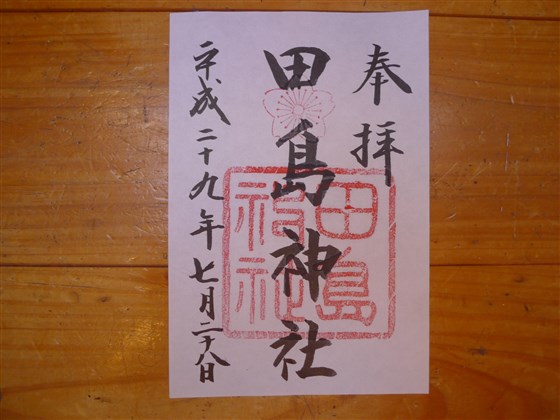 奉拝
田島神社
田島神社
平成二十九年七月二十八日